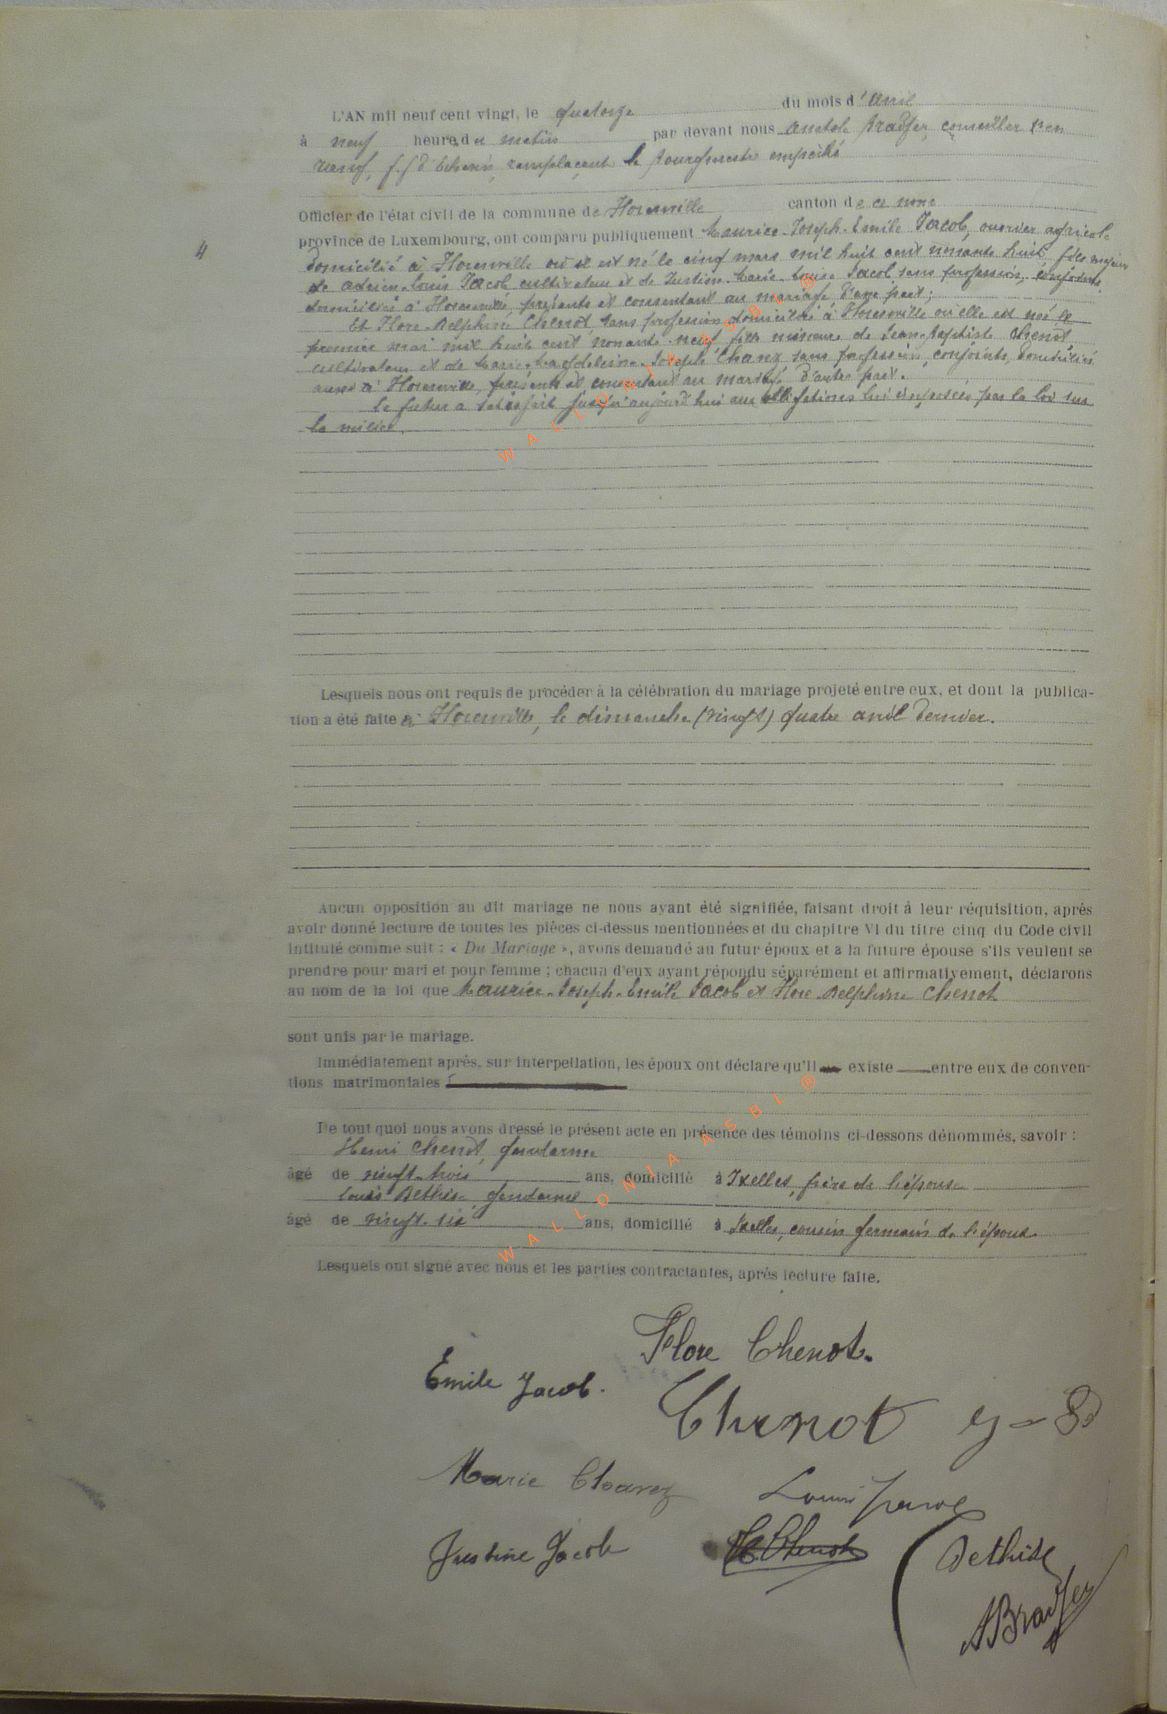 L'AN mil neuf cent vingt, le quatorze du mois d'avril
à neuf heure du matin par devant nous Anatole Bradfer, conseiller 1er en
rang, f.f. d'Echevin, remplaçant le Bourgmestre empêché
Officier de l'état civil de la commune de Homenville canton de ce nom
4
province de Luxembourg, ont comparu publiquement Maurice-Joseph-Emile Jacob, ouvrier agricole
domicilié à où il est né le cinq mars mil huit cent nonante huit, fils majeur
de Adrien-Louis Jacob cultivateur et de Justine-Marie-Louise Jacob sans profession, conjoints,
domiciliés à présents et consentant au mariage d'une part;
Et Flore-Delphine Chenot sans profession domiciliée à où elle est née le
premier mai mil huit cent nonante-neuf fille mineure de Jean-Baptiste Chenot
cultivateur et de Marie-Magdeleine-Joseph Chavez sans profession, conjoints, domiciliés
aussi à présents et consentant au mariage d'autre part.
Le futur a satisfait jusqu'aujourd'hui aux obligations lui imposées par la loi sur
la milice.
Lesquels nous ont requis de procéder à la célébration du mariage projeté entre eux, et dont la publica-
tion a été faite à le dimanche (vingt) quatre avril dernier.
Aucun opposition au dit mariage ne nous ayant été signifiée, faisant droit à leur réquisition, après
avoir donné lecture de toutes les pièces ci-dessus mentionnées et du chapitre VI du titre cinq du Code civil
intitulé comme suit : « Du Mariage », avons demandé au futur époux et a la future épouse s'ils veulent se
prendre pour mari et pour femme ; chacun d'eux ayant répondu séparément et affirmativement, déclarons
au nom de la loi que Maurice-Joseph-Emile Jacob et Flore-Delphine Chenot
sont unis par le mariage.
Immédiatement après, sur interpellation, les époux ont déclare qu'il existe entre eux de conven-
tions matrimoniales
De tout quoi nous avons dressé le présent acte en présence des témoins ci-dessons dénommés, savoir :
Henri Chenot, gendarme
âgé de vingt-trois ans, domicilié à Ixelles, frère de l'épouse
Louis Dethise, gendarme
âgé de vingt-six ans, domicilié à Ixelles, cousin germain de l'époux
Lesquels ont signé avec nous et les parties contractantes, après lecture faite.
Flore Chenot.
Emile Jacob.
Chenot
Marie Chavez Louis Jacob
Justine Jacob H Chenot Dethise
ABradfer
WALLONIA ASBL ®
WALLONIA ASBL ®